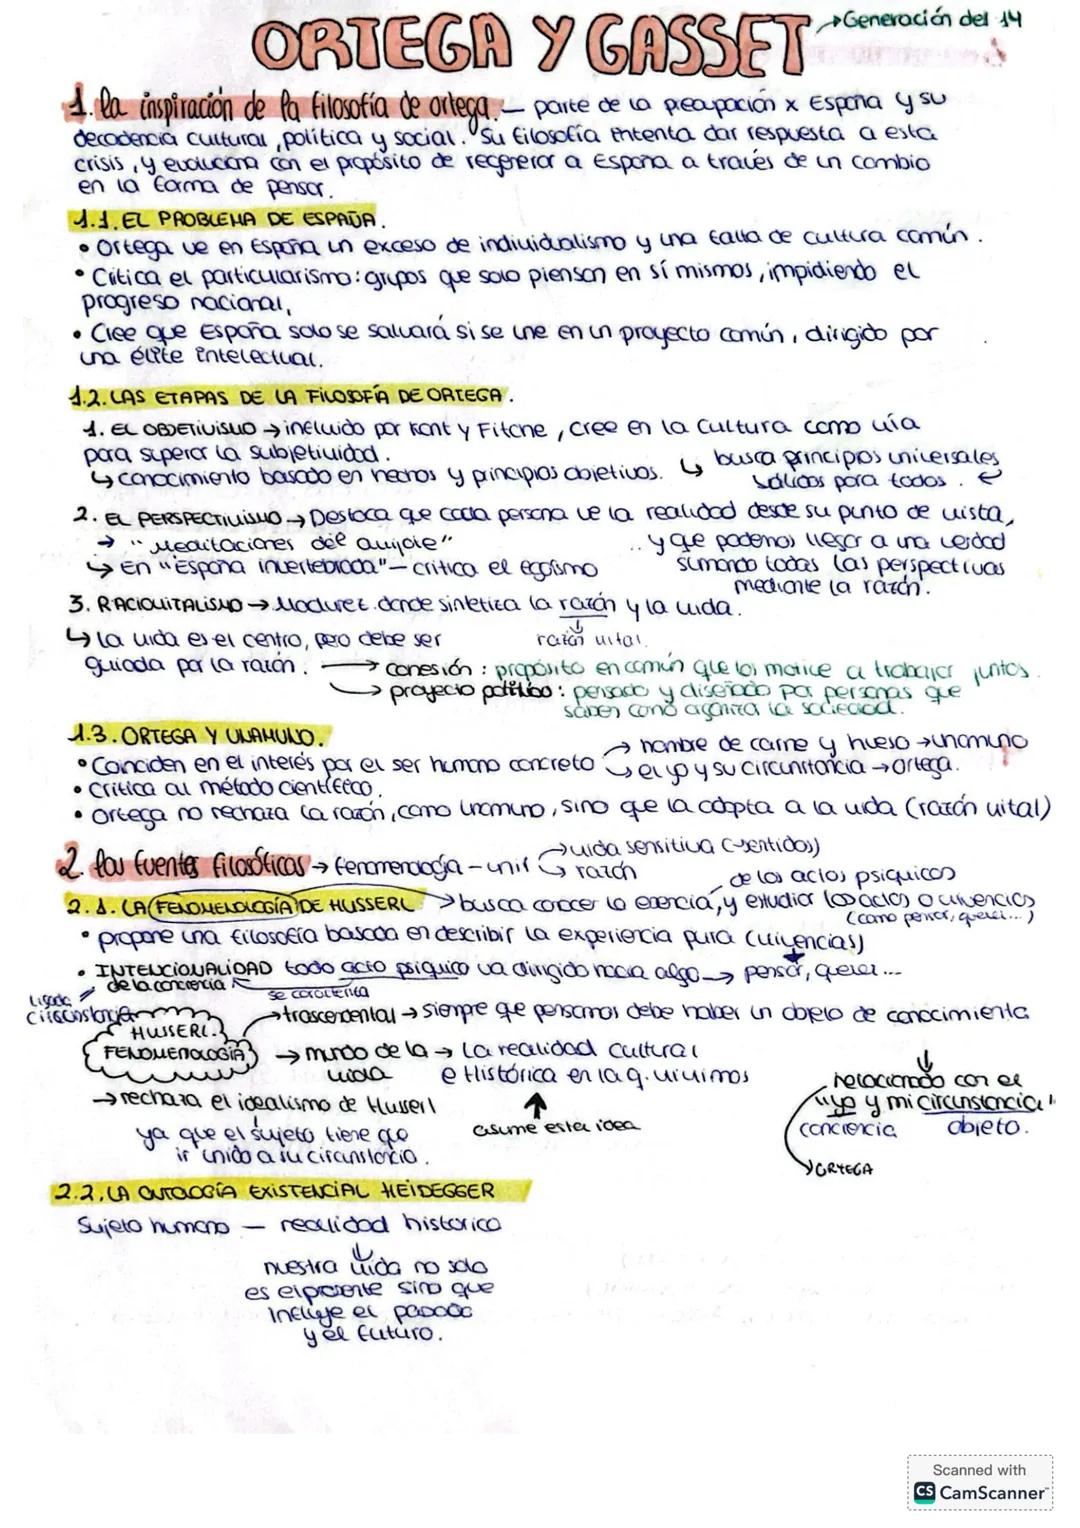 ORTEGA Y GASSET →Generación del 14
1. la inspiración de la filosofía de ortega. — parte de la preocupación x España y su
decadencia cultural, política y social. Su filosofía intenta dar respuesta a esta
crisis, y evoluciona con el propósito de regenerar a España a través de un cambio
en la forma de pensar.
1.1. EL PROBLEMA DE ESPAÑA.
• Ortega ve en España un exceso de individualismo y una falta de cultura común.
• Critica el particularismo: grupos que solo piensan en sí mismos, impidiendo el
progreso nacional.
• Cree que España solo se salvará si se une en un proyecto común, dirigido por
una élite intelectual.
1.2. LAS ETAPAS DE LA FILOSOFÍA DE ORTEGA.
1. EL OBJETIVISMO → incluido por Kant y Fitche, cree en la cultura como vía
para superar la subjetividad.
↳ conocimiento basado en hechos y principios objetivos. ↳ busca principios universales
válidos para todos. ←
2. EL PERSPECTIVISMO → Destaca que cada persona ve la realidad desde su punto de vista,
→ "Meditaciones del quijote" .. y que podemos llegar a una verdad
↳ En "España invertebrada" — critica el egoísmo sumando todas las perspectivas
mediante la razón.
3. RACIOVITALISMO → Madurez. donde sintetiza la razón y la vida.
↳ la vida es el centro, pero debe ser razón vital.
guiada por la razón. → conesión: propósito en común que los motive a trabajar juntos.
→ proyecto político: pensado y diseñado por personas que
saben como organiza la sociedad.
1.3. ORTEGA Y UNAMUNO.
→ hombre de carne y hueso → unamuno
• Coinciden en el interés por el ser humano concreto ↳ el yo y su circunstancia → Ortega.
• Critica al método científico.
• Ortega no rechaza la razón, como Unamuno, sino que la adapta a la vida (razón vital)
2. las fuentes filosóficas → fenomenología — unir → vida sensitiva (sentidos)
↳ razón
de los actos psíquicos
2.1. LA FENOMENOLOGÍA DE HUSSERL → busca conocer la esencia, y estudiar los actos o vivencias
(como pensar, querer...)
• propone una filosofía basada en describir la experiencia pura (vivencias)
• INTENCIONALIDAD todo acto psíquico va dirigido hacia algo → pensar, querer...
de la conciencia se caracteriza
ligada circunstancia
→ trascendental → siempre que pensamos debe haber un objeto de conocimiento
HUSSERL.
FENOMENOLOGÍA → mundo de la → La realidad cultural
vida e Histórica en la q. vivimos
relacionado con el
→ rechaza el idealismo de Husserl "yo y mi circunstancia"
ya que el sujeto tiene que asume esta idea conciencia objeto.
ir unido a su circunstancia.
ORTEGA
2.2. LA ONTOLOGÍA EXISTENCIAL HEIDEGGER
Sujeto humano — realidad histórica
↓
nuestra vida no solo
es el presente sino que
incluye el pasado
y el futuro.
Scanned with
CS CamScanner